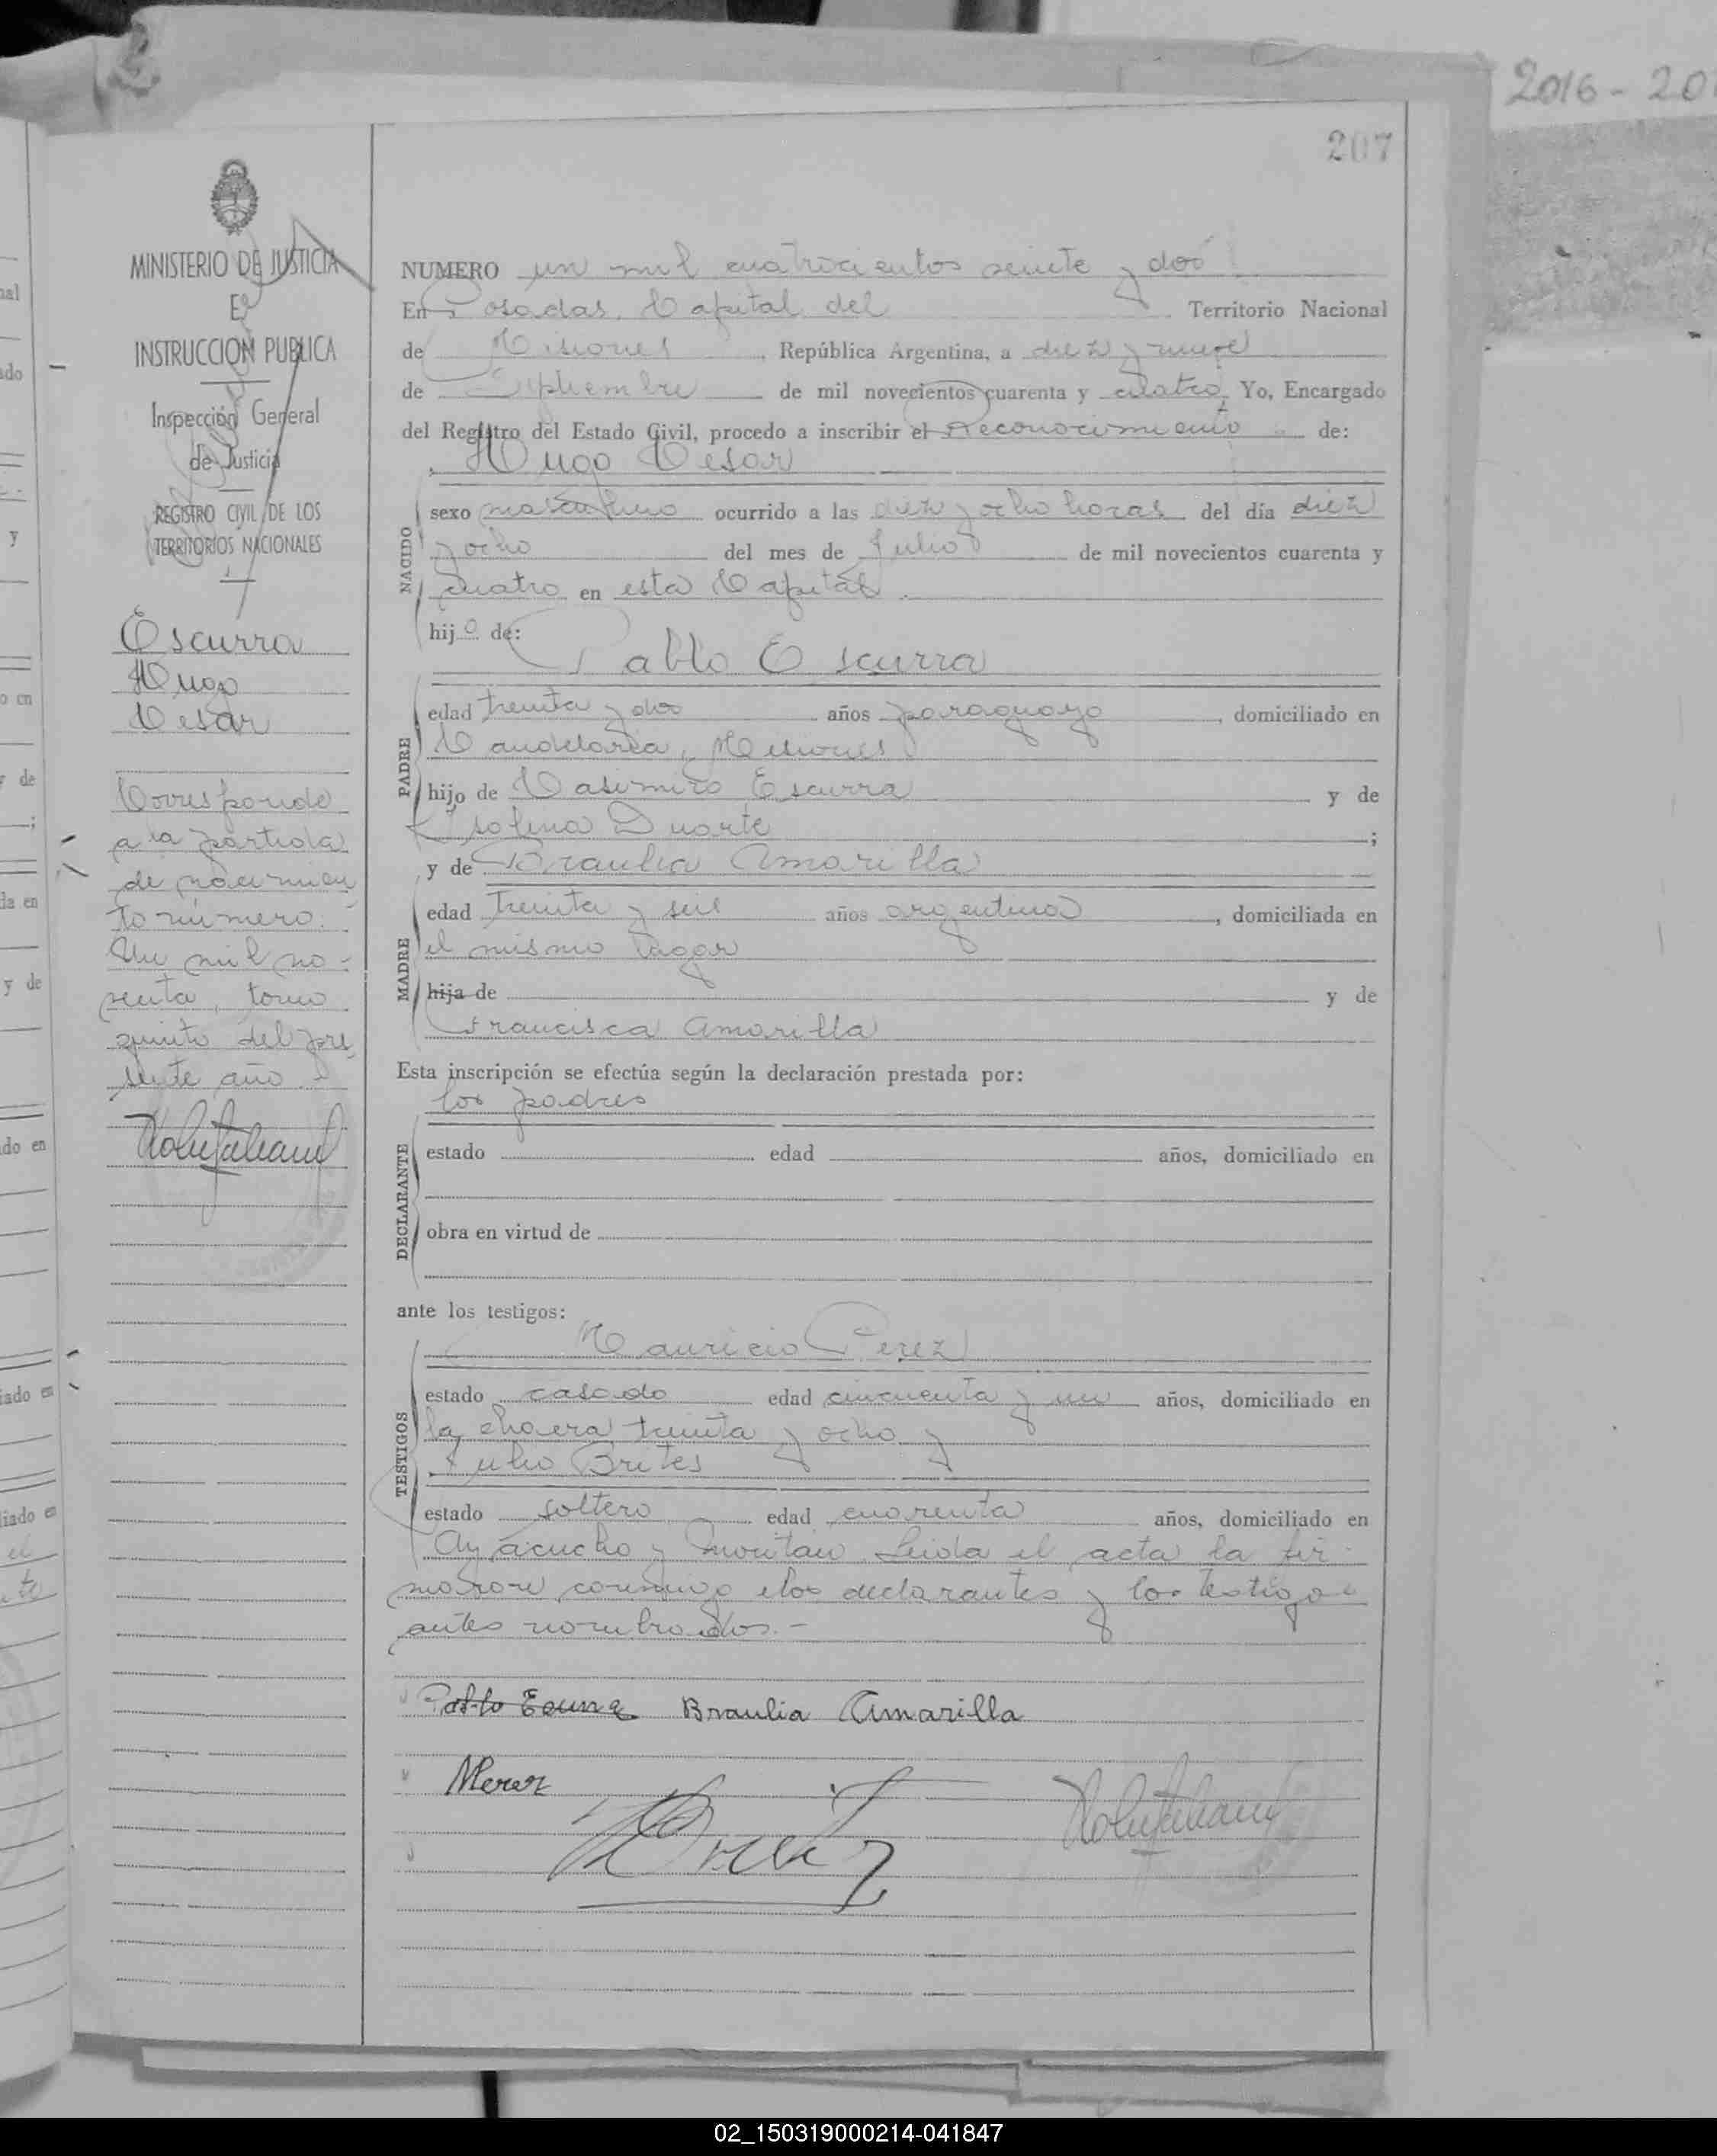 2016 - 20
207
MINISTERIO DE JUSTICIA
E
INSTRUCCION PUBLICA
Inspección General
de Justicia
REGISTRO CIVIL DE LOS
TERRITORIOS NACIONALES
Escurra
Hugo
Cesar
Corresponde
a la partida
de nacimien
to número
Un mil no-
venta, tomo
quinto del pre
sente año
NUMERO un mil cuatrocientos veinte y dos
En Posadas, Capital del Territorio Nacional
de Misiones, República Argentina, a diez y nueve
de Septiembre de mil novecientos cuarenta y cuatro, Yo, Encargado
del Registro del Estado Civil, procedo a inscribir el Reconocimiento de:
Hugo Cesar
NACIDO
sexo masculino ocurrido a las diez y ocho horas del día diez
y ocho del mes de Julio de mil novecientos cuarenta y
cuatro en esta Capital.
hijo de:
Pablo Escurra
PADRE
edad treinta y dos años paraguayo, domiciliado en
Candelaria, Misiones
hijo de Casimiro Escurra y de
Isolina Duarte;
y de Braulia Amarilla
MADRE
edad treinta y seis años argentina, domiciliada en
el mismo lugar
hija de y de
Francisca Amarilla
Esta inscripción se efectúa según la declaración prestada por:
los padres
DECLARANTE
estado edad años, domiciliado en
obra en virtud de
ante los testigos:
Mauricio Perez
TESTIGOS
estado casado edad cincuenta y un años, domiciliado en
la chacra treinta y ocho y
Julio Brites
estado soltero edad cuarenta años, domiciliado en
Ayacucho y Leida el acta la fir-
maron conmigo los declarantes y los testigos
antes nombrados.-
Pablo Braulia Amarilla
MPerez
02_150319000214-041847